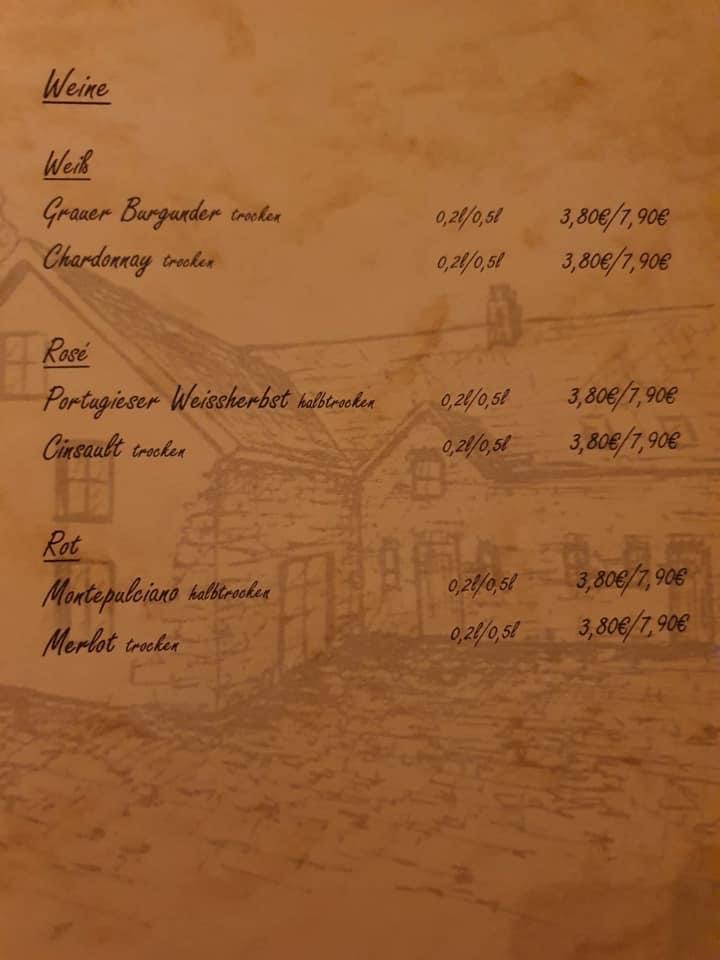 Weine
Weiß
Grauer Burgunder trocken 0,2l/0,5l 3,80€/7,90€
Chardonnay trocken 0,2l/0,5l 3,80€/7,90€
Rosé
Portugieser Weissherbst halbtrocken 0,2l/0,5l 3,80€/7,90€
Cinsault trocken 0,2l/0,5l 3,80€/7,90€
Rot
Montepulciano halbtrocken 0,2l/0,5l 3,80€/7,90€
Merlot trocken 0,2l/0,5l 3,80€/7,90€